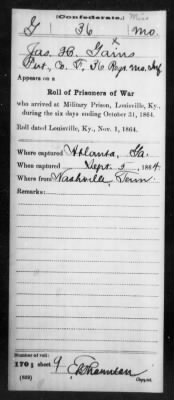 (Confederate.) Miss
G 36 Mo.
Jas. B. Gains
Pvt., Co. F, 36 Regt. Mo. Inf.
Appears on a
Roll of Prisoners of War
who arrived at Military Prison, Louisville, Ky.,
during the six days ending October 31, 1864.
Roll dated Louisville, Ky., Nov. 1, 1864.
Where captured Atlanta, Ga.
When captured Sept. 5, 1864
Where from Nashville, Tenn
Remarks:
Number of roll:
170; sheet 9
(639) Copyist.